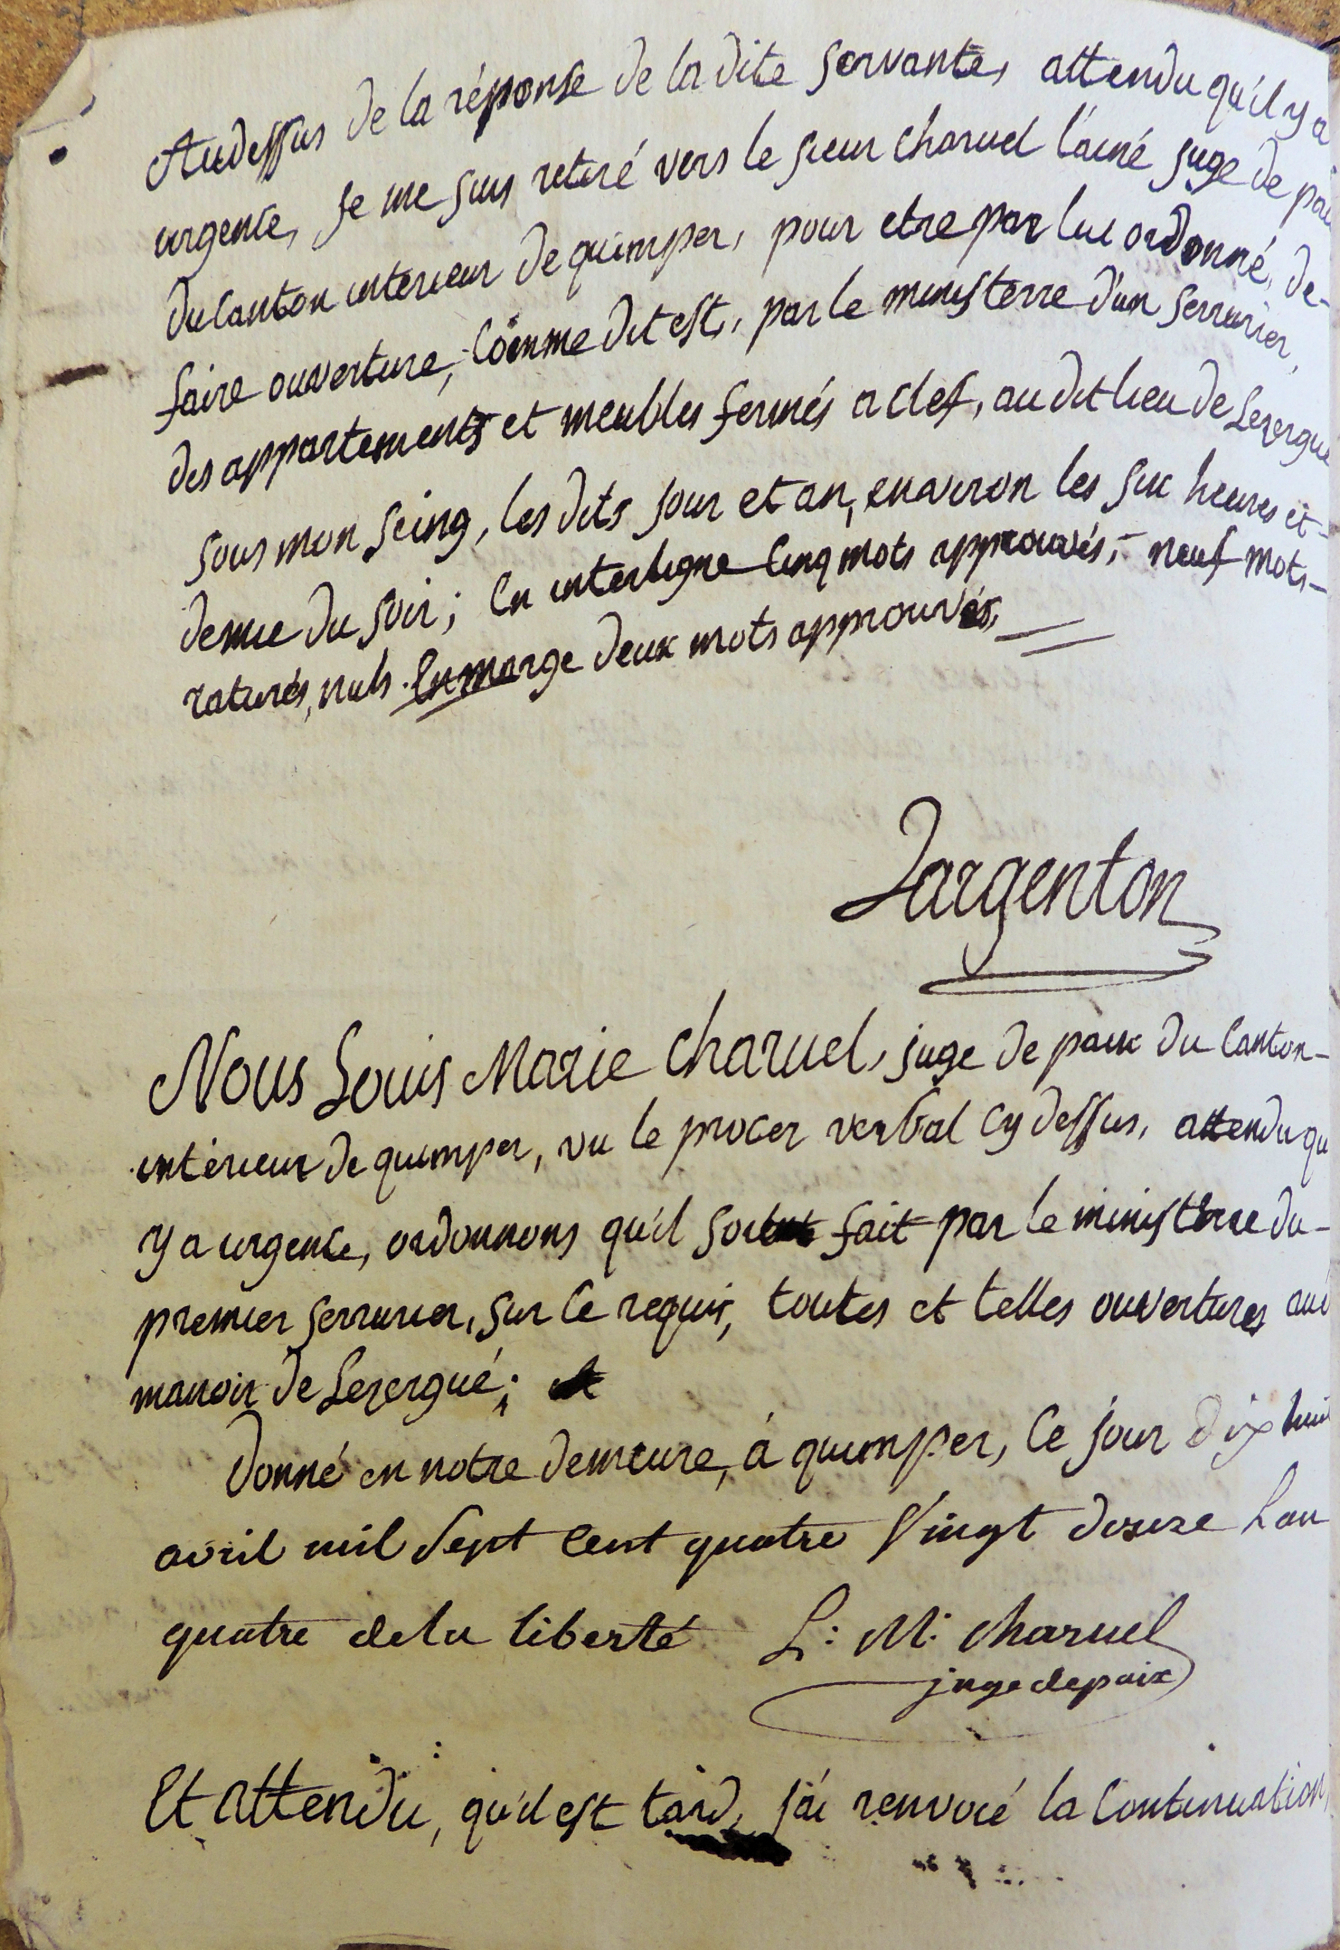 Audessus de la réponse de la dite servante, attendu qu'il y a
urgence, je me suis retiré vers le sieur charuel l'ainé juge de paix
du Canton interieur de quimper, pour etre par lui ordonné, de-
faire ouverture, Comme dit est, par le ministerre d'un serrurier,
des appartements et meubles fermés a clef, au dit lieu de Lezergué
sous mon seing, les dits jour et an, environ les six heures et-
demie du soir; En interligne Cinq mots approuvés,- neuf mots-
raturés, nuls. En marge deux mots approuvés,
Jargenton
Nous Louis Marie Charuel, juge de paix du Canton-
intérieur de quimper, vu le procer verbal Cy dessus, attendu qu
y a urgence, ordonnons qu'il soit fait par le ministerre du-
premier serrurier, sur Ce requis, toutes et telles ouvertures aud
manoir de Lezergué;
Donné en notre demeure, à quimper, Ce jour dix huit
avril mil Sept Cent quatre Vingt douze L'an
quatre de la liberté L: M: charuel
juge de paix
Et attendu, qu'il est tard, j'ai renvoié la Continuation,